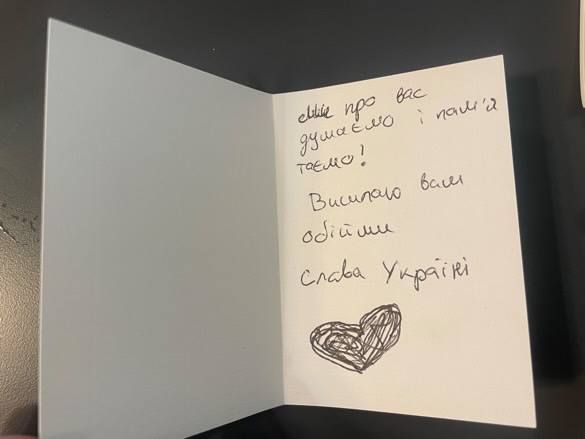 ми про вас
думаємо і пам'я
таємо!
Висилаю вам
обійми
Слава Україні